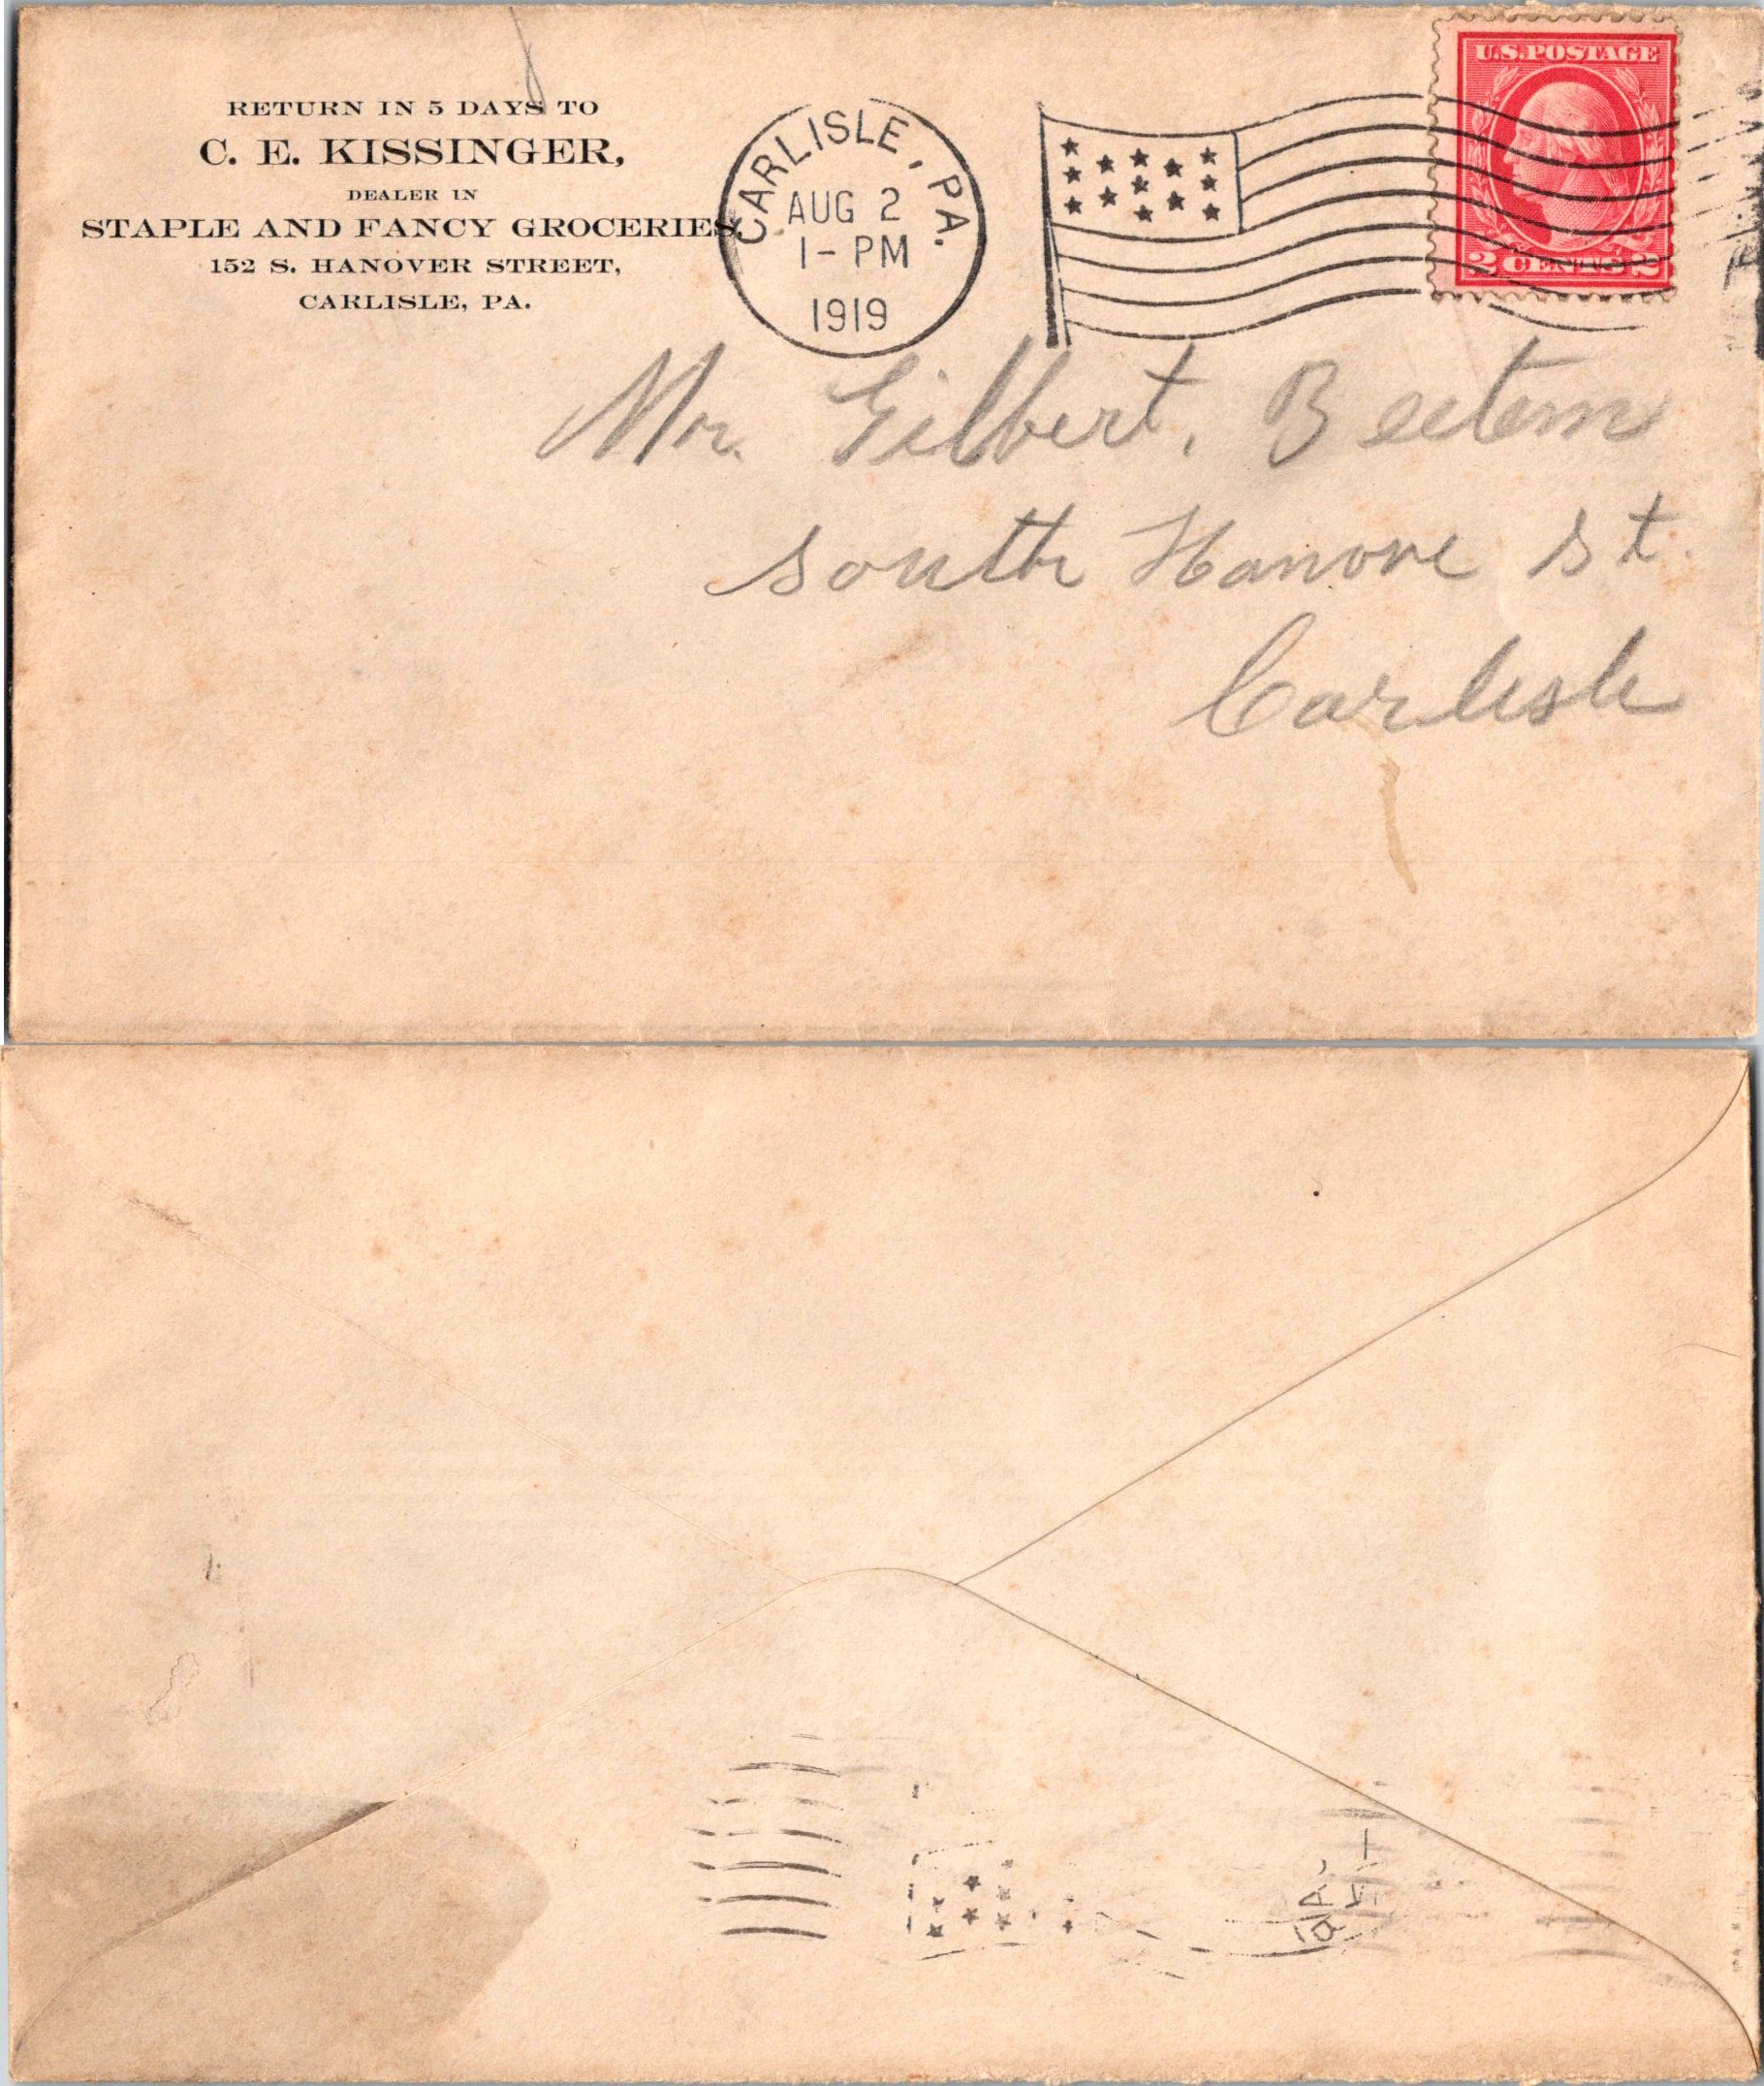 RETURN IN 5 DAYS TO
C. E. KISSINGER,
DEALER IN
STAPLE AND FANCY GROCERIES,
152 S. HANOVER STREET,
CARLISLE, PA.
CARLISLE, PA.
AUG 2
1-PM
1919
U.S. POSTAGE
2 CENTS 2
Mr. Gilbert. Beetem
South Hanove St.
Carlisle
PA.